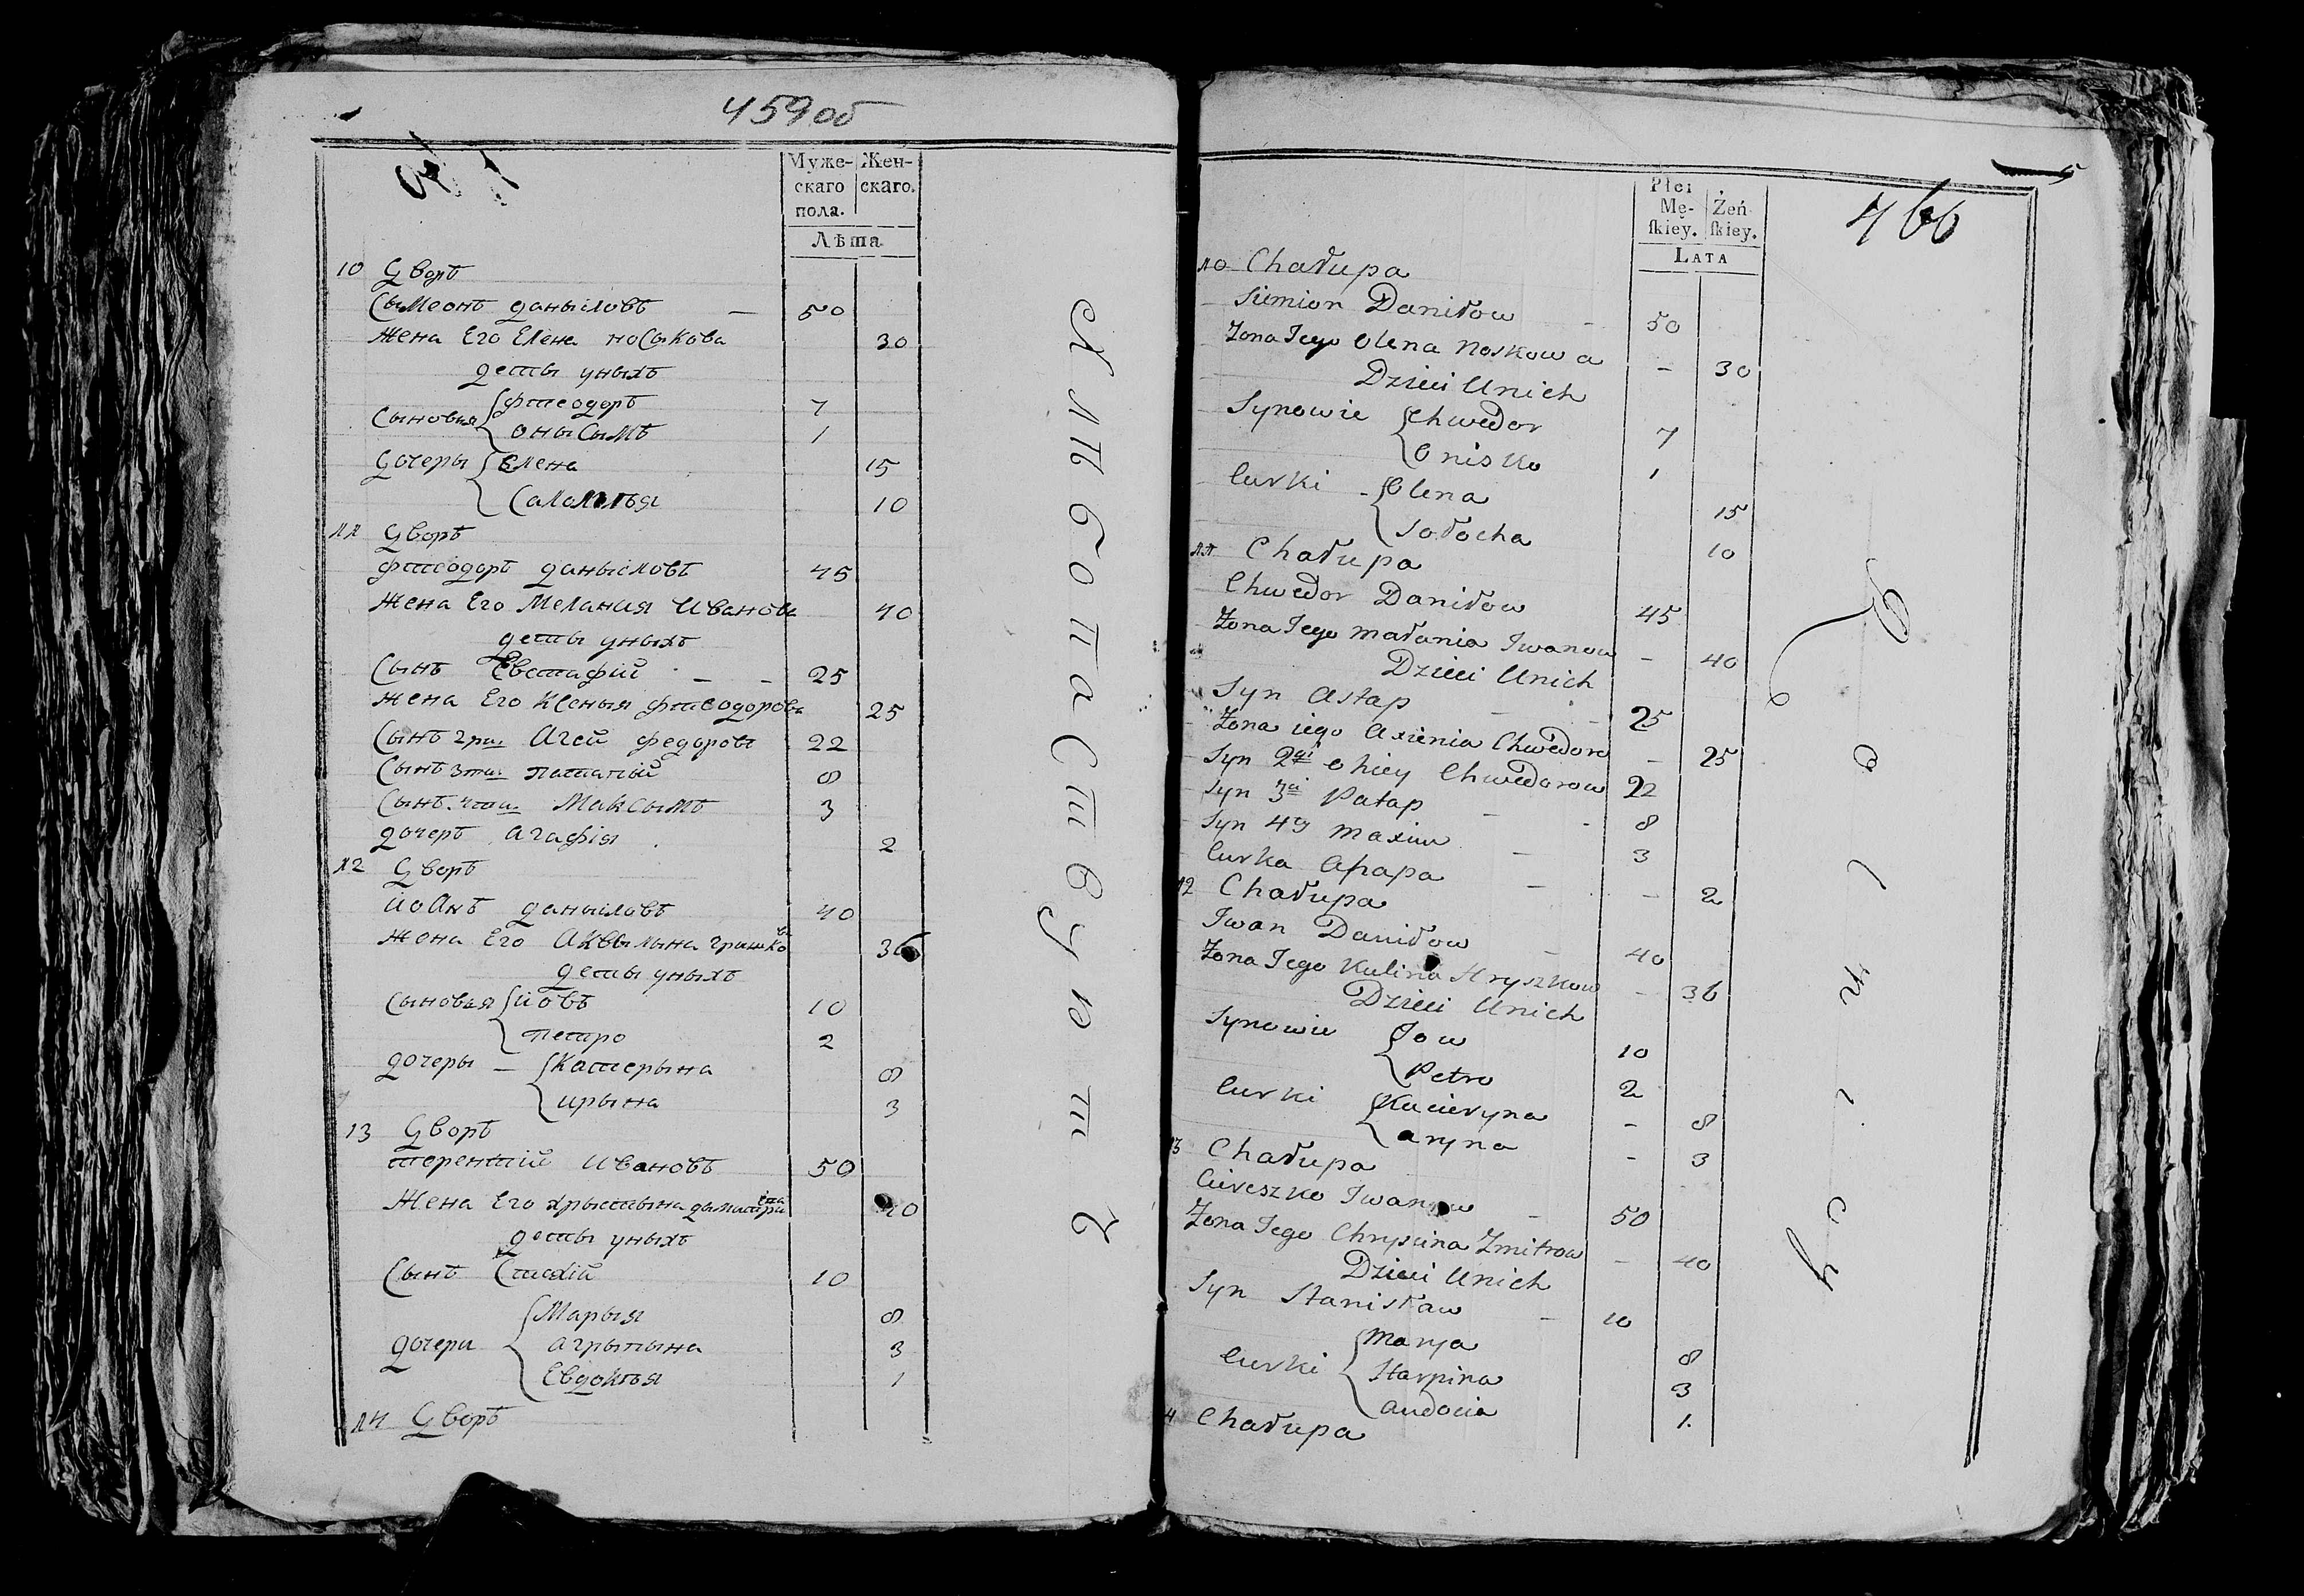 459об
Муже- Жен-
скаго скаго.
пола.
Лѣта
10 Дворъ
Сымеонъ даныловъ — 50
Жена Его Елена носыкова 30
деты уныхъ
Сыновья { фтеодоръ 7
оныСымъ 1
дочеры { Елена 15
Саломѣя 10
11 Дворъ
фтеодоръ даныловъ 45
Жена Его Мелания Иванова 40
деты уныхъ
Сынъ Евстафій — — 25
Жена Его Ксеныя фтеодорова 25
Сынъ 2ри Агей федоровъ 22
Сынъ 3ти патапій 8
Сынъ 4ти Максымъ 3
дочеръ агафія 2
12 Дворъ
иоанъ даныловъ 40
Жена Его Акввылына гришкова 36
деты уныхъ
Сыновья { йовъ 10
петро 2
дочеры — { Катерына 8
ирына 3
13 Дворъ
терентий ивановъ 50
Жена Его хрыстына 40
деты уныхъ
Сынъ 10
дочери { Марыя 8
агрыпына 3
Евдокѣя 1
14 Дворъ
Płci
Mę- Żeń-
skiey. skiey.
LATA
466
10 Chałupa
Siemion Daniłow - 50
Zona Jego Olena Noskowa - 30
Dzieci Unich
Synowie { Chwedor 7
Onisko 1
Curki - { Olena 15
Sołocha 10
11 Chałupa
Chwedor Daniłow 45
Zona Jego Małania Iwanow - 40
Dzieci Unich
Syn Astap - - 25
Zona iego Axienia Chwedoro - 25
Syn 2gi Ohiey Chwedorow 22
Syn 3i Patap - - 8
Syn 4y Maxim - 3
Curka Ahapa - - 2
12 Chałupa
Iwan Daniłow - 40
Zona Jego Kulina Hryszkow - 36
Dzieci Unich
Synowie { Jow 10
Petro 2
Curki { Kacieryna - 8
aryna - 3
13 Chałupa
Ciereszko Iwanow - 50
Zona Jego Chryscina Zmitrow - 40
Dzieci Unich
Syn Stanisław - 10
Curki { Marya 8
Harpina 3
Audocia 1.
14 Chałupa